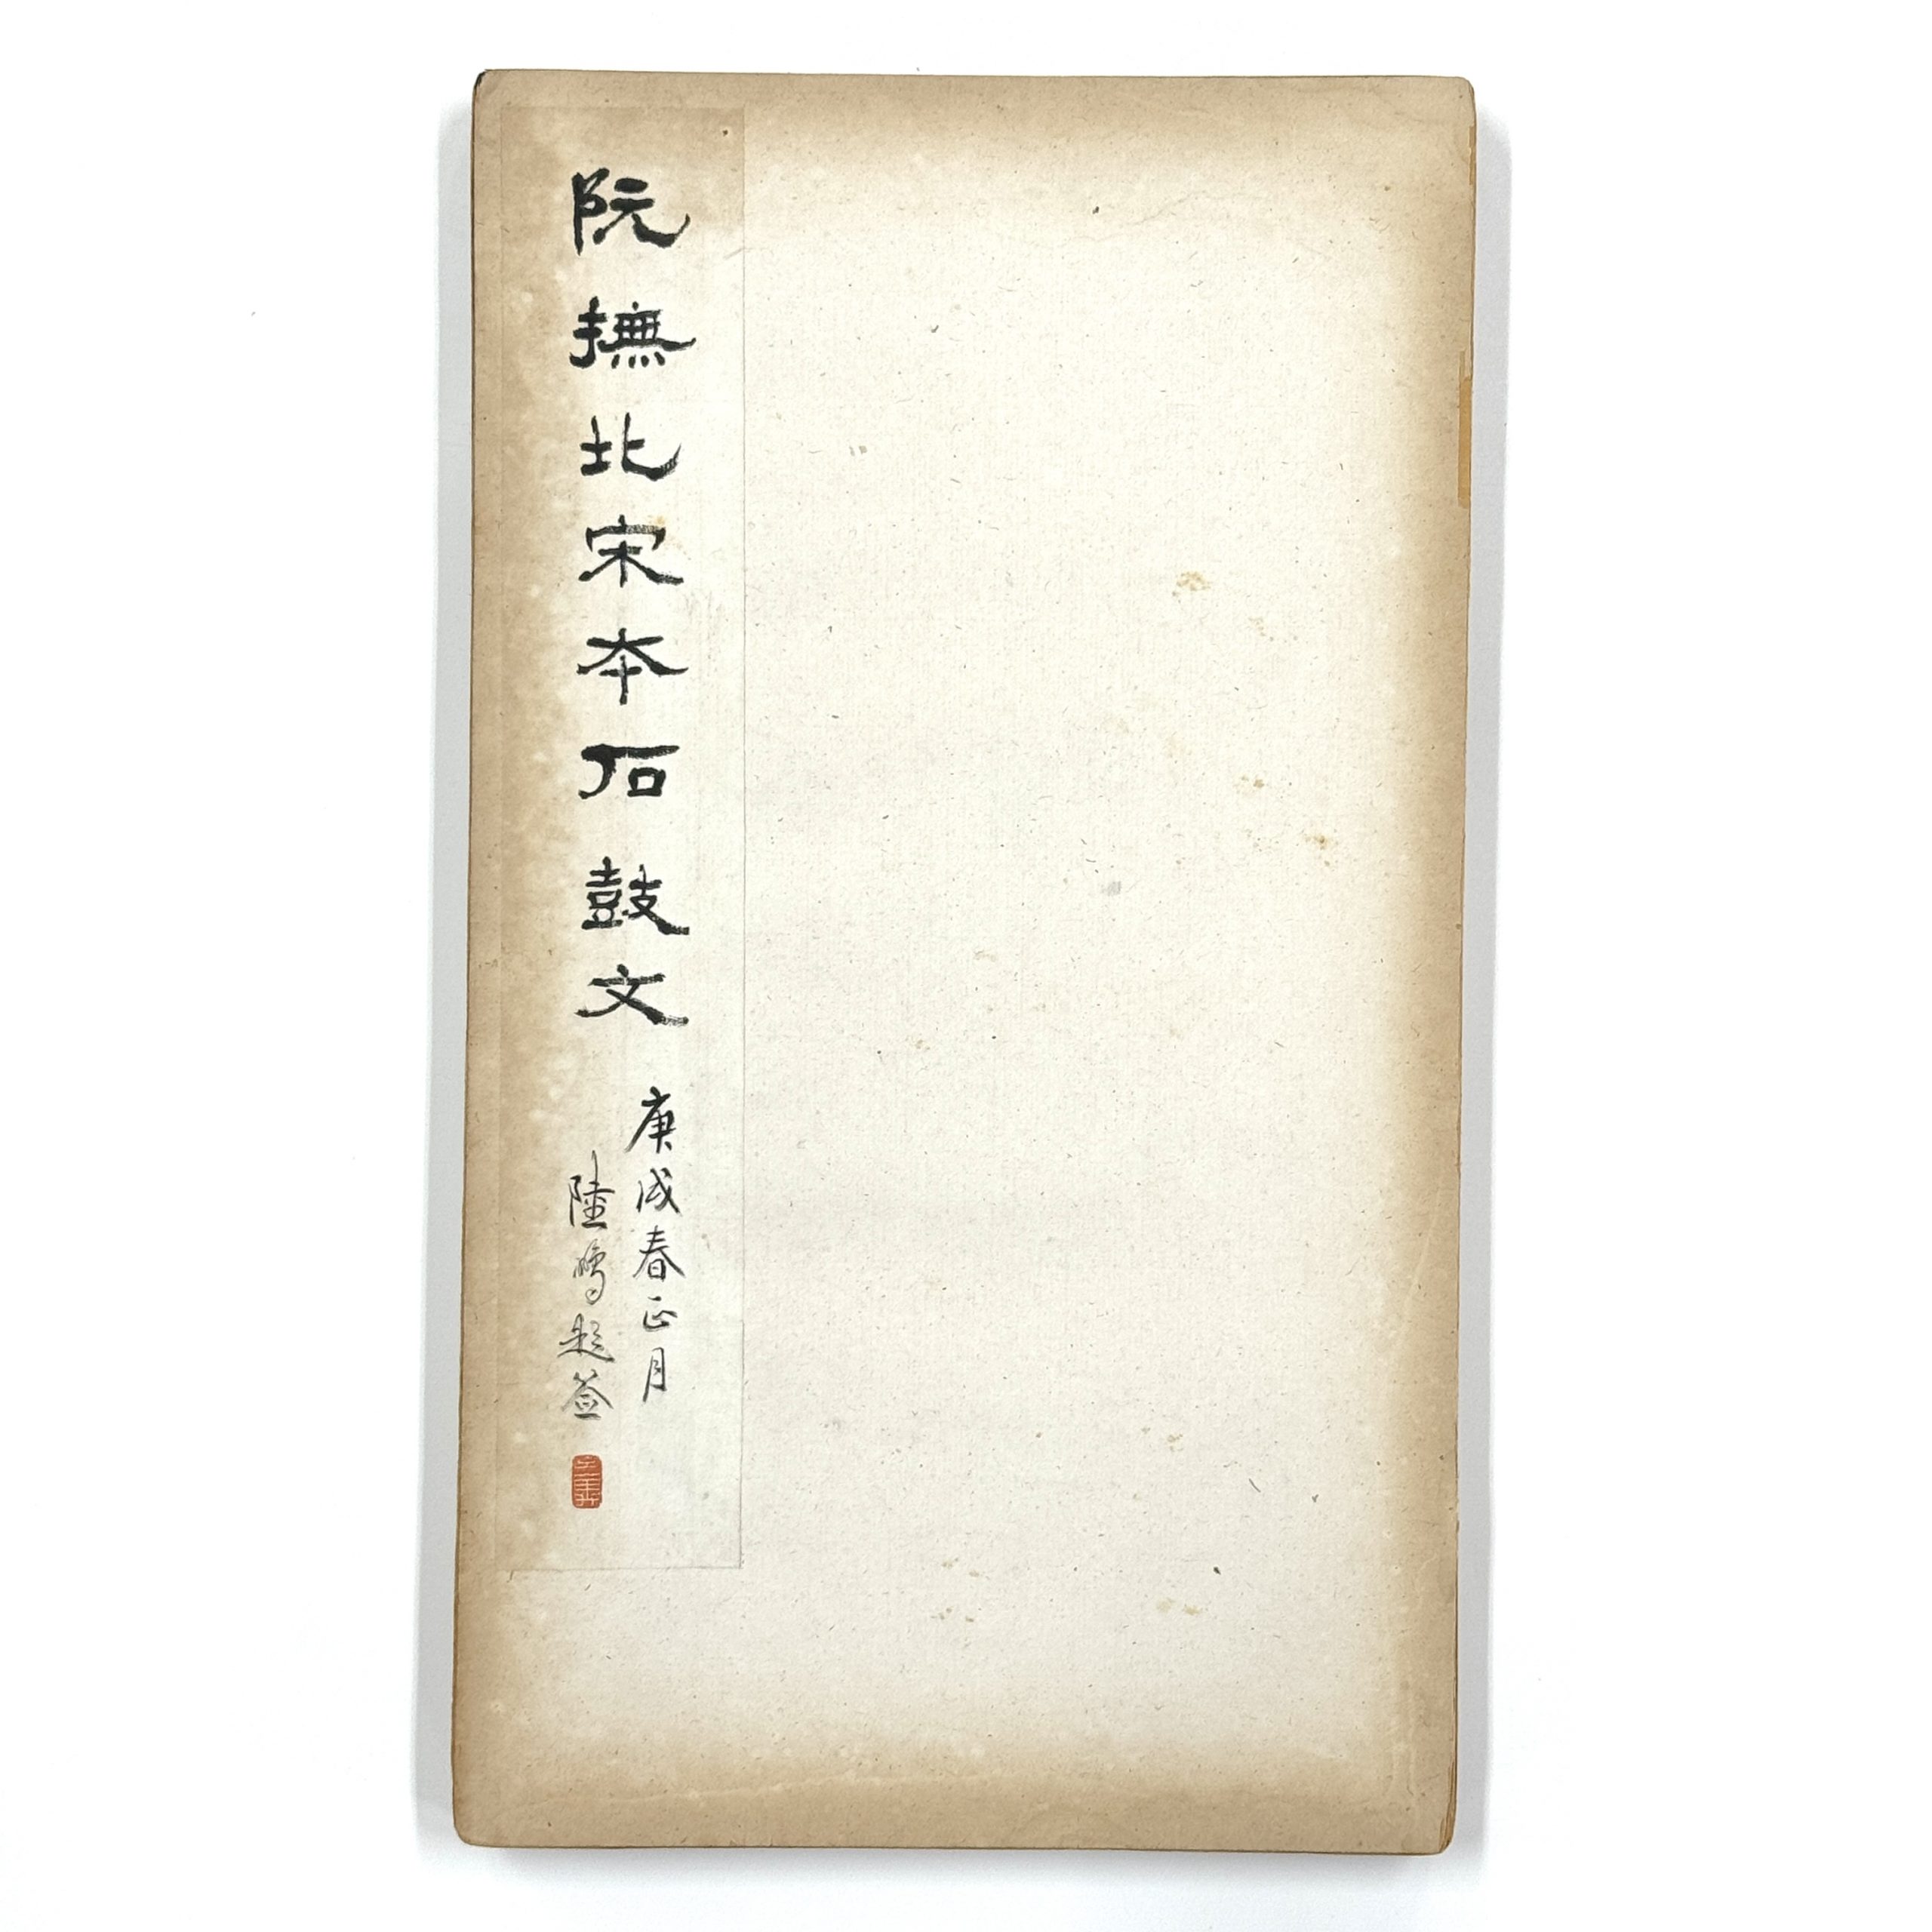 阮撫北宋本石鼓文
庚戌春正月
陸題签